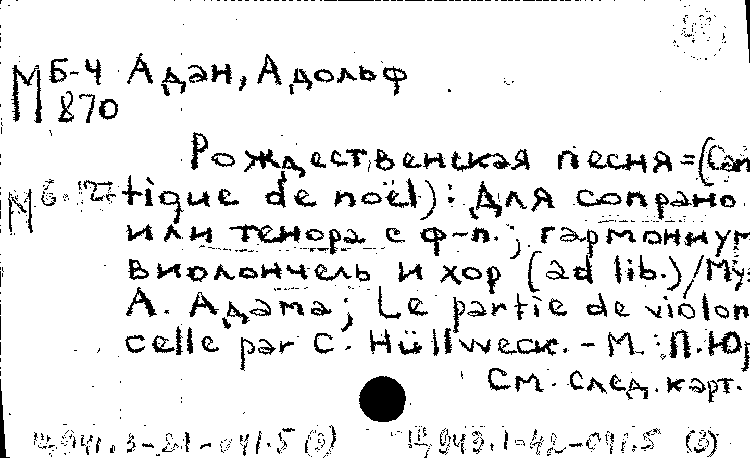 М Б-4 Адан, Адольф
870
Рождественская песня = (Can
М tique de noël): Для сопрано
или тенора с ф-п.; гармониум
виолончель и хор (ad lib.) / Муз
А. Адама; Le partie de violon
celle par C. Hüllweck. - М.: П. Юр
См. след. карт.